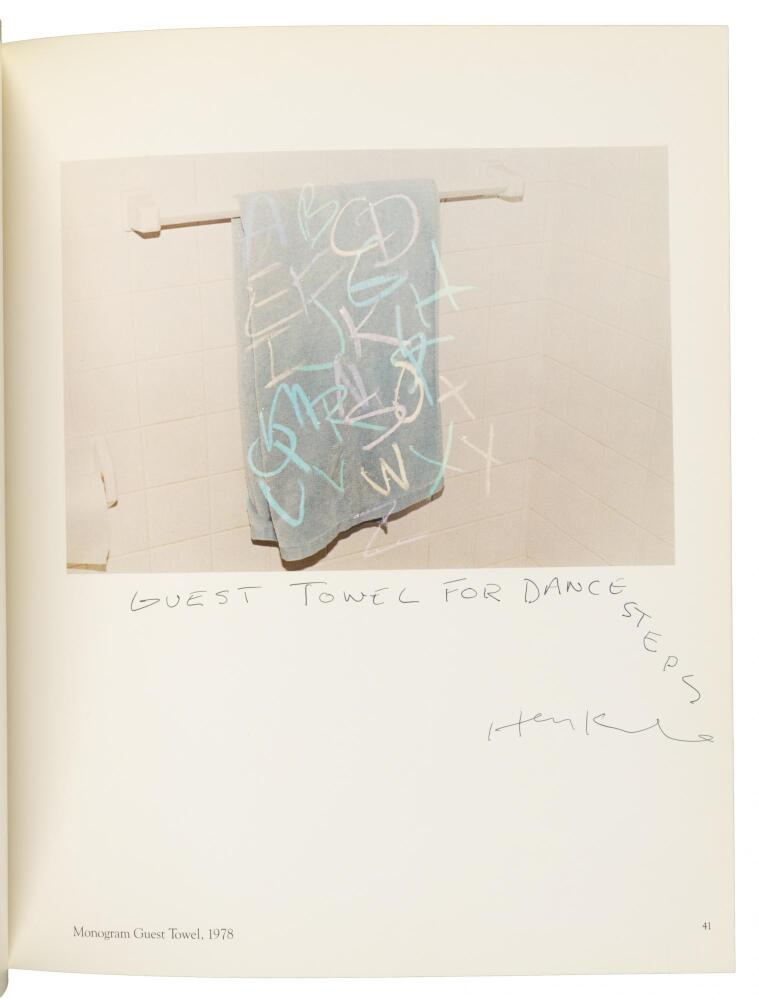 A B C D
E F G H
I J K
M N O
Q R S
U V W X Y
Z
GUEST TOWEL FOR DANCE
STEPS
Monogram Guest Towel, 1978
41